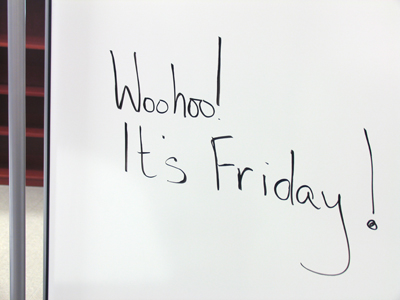 Woohoo!
It's Friday!